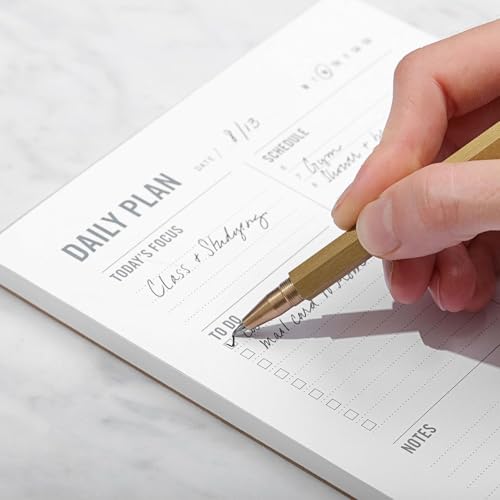 DAILY PLAN
DATE / 8/13
TODAY'S FOCUS
Class + Studying
SCHEDULE
Gym
Shower +
TO DO
Mail card to Mom
NOTES